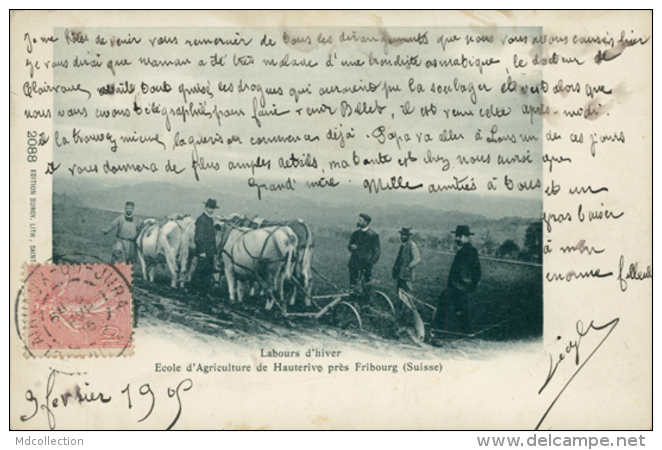 Je me hâte de venir vous remercier de tous les dérangements que nous vous avons causés hier
je vous dirai que maman a été très malade d'une bronchite asmatique le docteur de
Clairvaux, tout épuisé les drogues qui auraient pu la soulager et c'est alors que
nous vous avons télégraphié, pour faire venir Billet, il est venu cette après-midi.
il la trouve mieux, la guérison commence déjà. Papa va aller à Lons un de ces jours
et vous donnera de plus amples détails, ma tante est chez nous ainsi que
Grand'mère. Mille amitiés à tous et un
gros baiser
à mon
énorme filleul
2088 EDITION
Labours d'hiver
Ecole d'Agriculture de Hauterive près Fribourg (Suisse)
9 février 1905
Mdcollection
www.delcampe.net